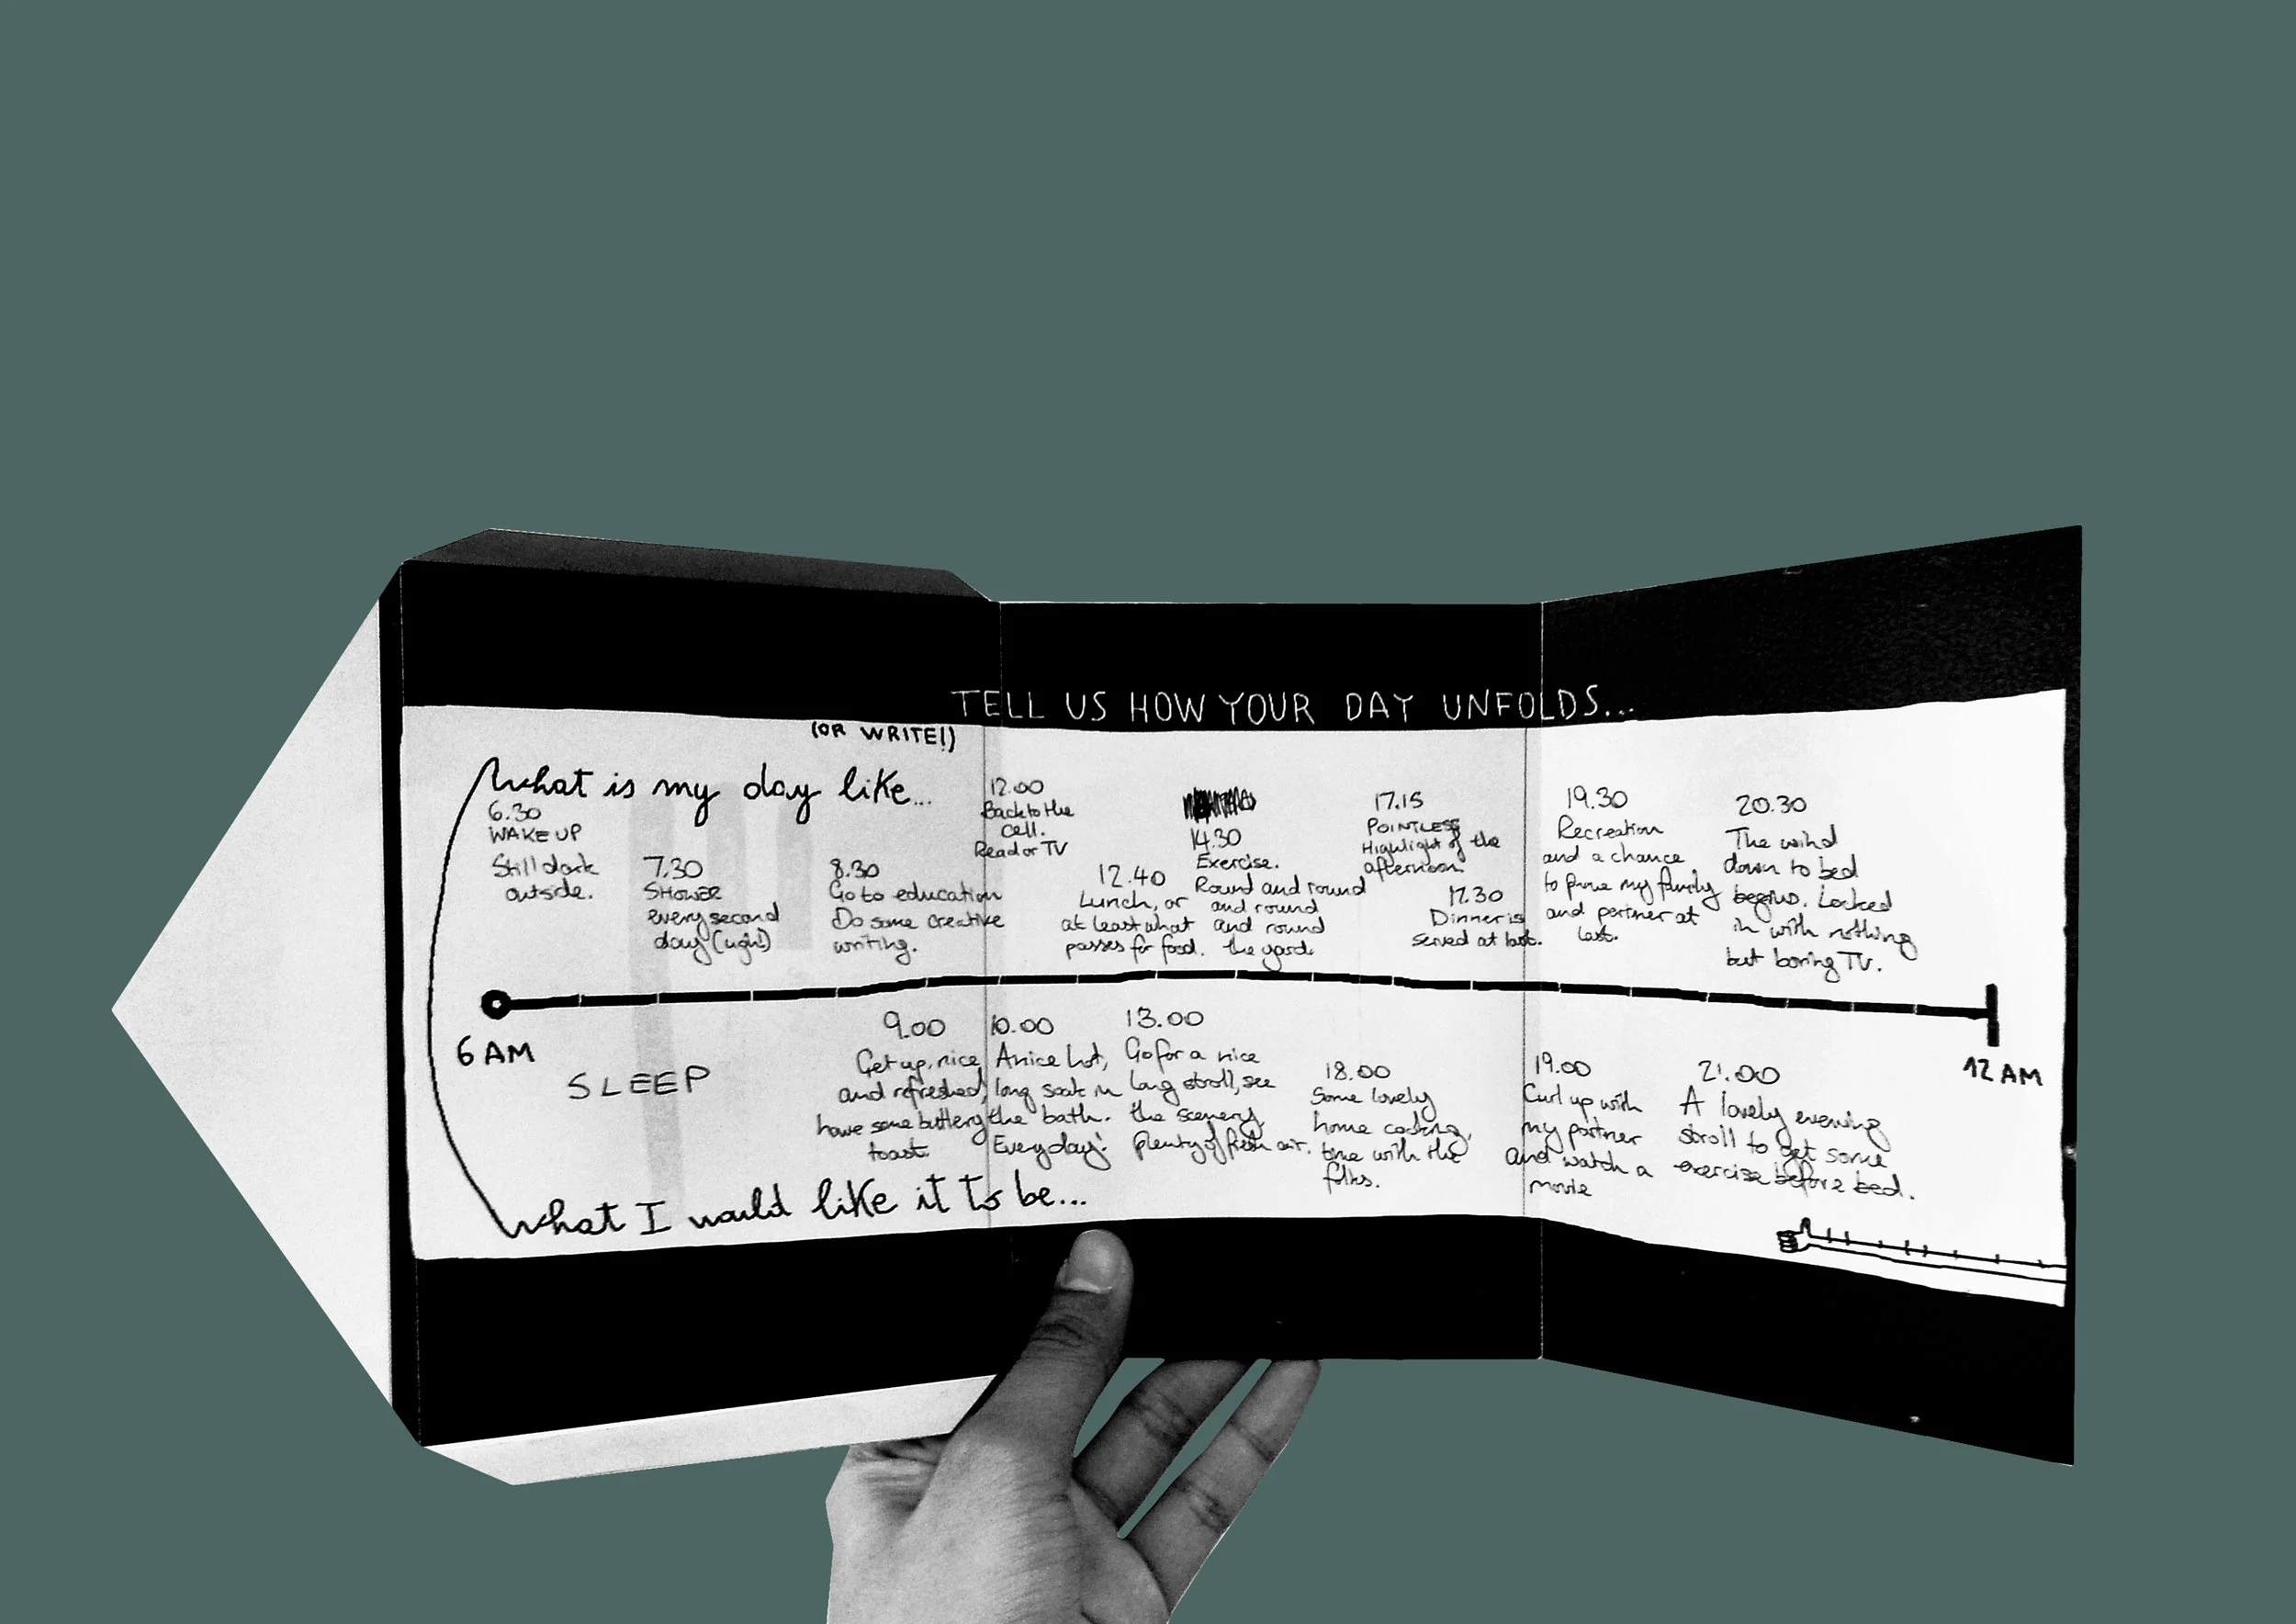 TELL US HOW YOUR DAY UNFOLDS...
(OR WRITE!)
What is my day like...
6.30
WAKE UP
Still dark
outside.
7.30
SHOWER
every second
day (ugh)
8.30
Go to education
Do some creative
writing.
12.00
Back to the
cell.
Read or TV
12.40
Lunch, or
at least what
passes for food.
14.30
Exercise.
Round and round
and round
and round
the yard.
17.15
POINTLESS
Highlight of the
afternoon.
17.30
Dinner is
served at last.
19.30
Recreation
and a chance
to phone my family
and partner at
last.
20.30
The wind
down to bed
begins. Locked
in with nothing
but boring TV.
6 AM
12 AM
SLEEP
9.00
Get up, nice
and refreshed,
have some buttery
toast.
10.00
A nice hot,
long soak in
the bath.
Everyday!
13.00
Go for a nice
long stroll, see
the scenery,
plenty of fresh air.
18.00
Some lovely
home cooking,
time with the
folks.
19.00
Curl up with
my partner
and watch a
movie
21.00
A lovely evening
stroll to get some
exercise before bed.
What I would like it to be...